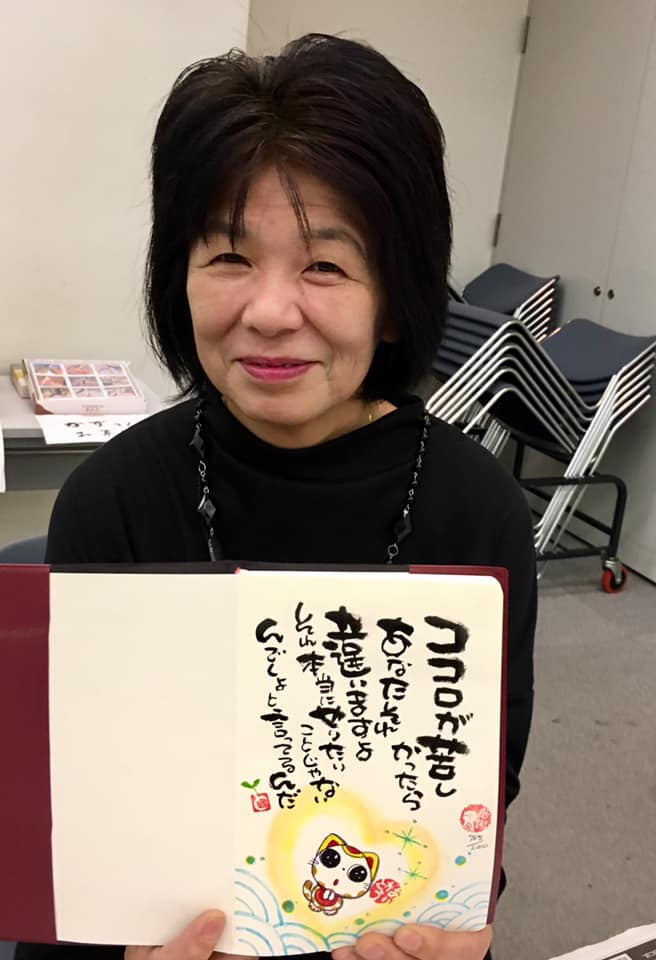 ココロが苦し
かったら
あなたそれ
違いますよ
それ本当にやりたい
ことじゃない
んでしょと言ってるんだ